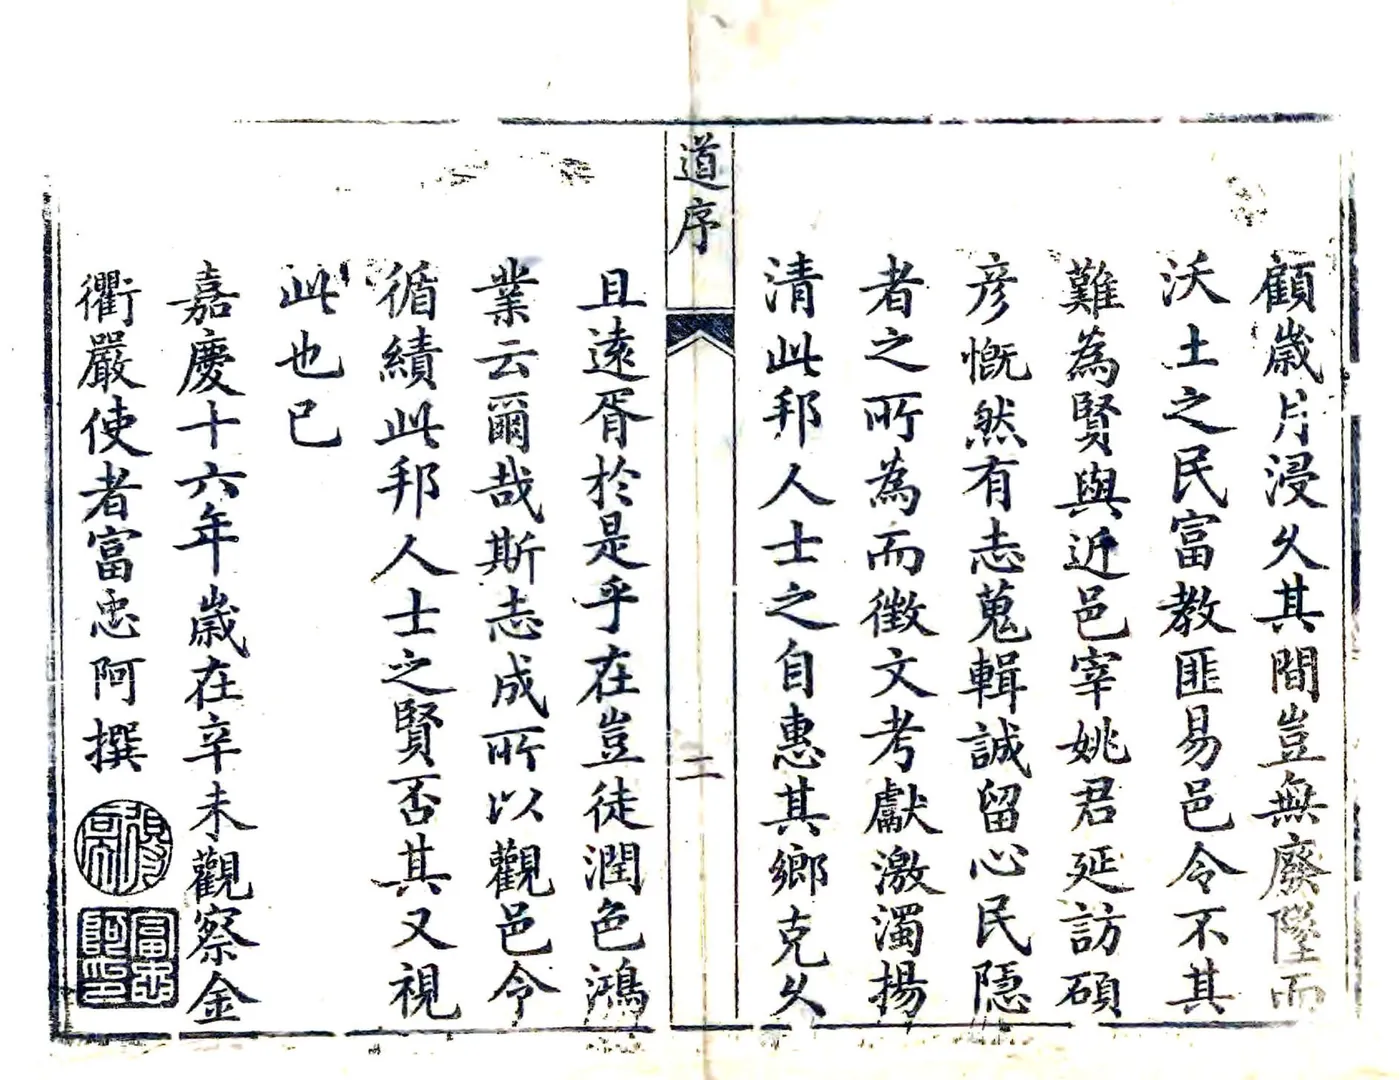 顧歲月浸久其間豈無廢墜而
沃土之民富教匪易邑令不其
難為賢與近邑宰姚君延訪碩
彦慨然有志蒐輯誠留心民隱
者之所為而徵文考獻激濁揚
清此邦人士之自惠其鄉克久
道序
二
且遠胥於是乎在豈徒潤色鴻
業云爾哉斯志成所以觀邑令
循績此邦人士之賢否其又視
此也已
嘉慶十六年歲在辛未觀察金
衢嚴使者富忠阿撰
富忠阿印